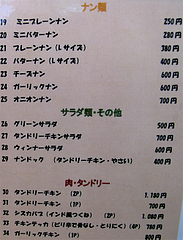 ナン類
19 ミニプレーンナン 250円
20 ミニバターナン 280円
21 プレーンナン (Lサイズ) 380円
22 バターナン (Lサイズ) 400円
23 チーズナン 600円
24 ガーリックナン 500円
25 オニオンナン 500円
サラダ類・その他
26 グリーンサラダ 500円
27 タンドリーチキンサラダ 700円
28 ウィンナーサラダ 600円
29 ナンドック (タンドリーチキン・やさい) 400円
肉・タンドリー
30 タンドリーチキン (4P) 1.180円
31 タンドリーチキン (2P) 700円
32 シスカバブ (インド風つくね) (4P) 1.080円
33 チキンティカ (ピリ辛骨なし・とりにく) (5P) 780円
34 ガーリックチキン (5P) 800円